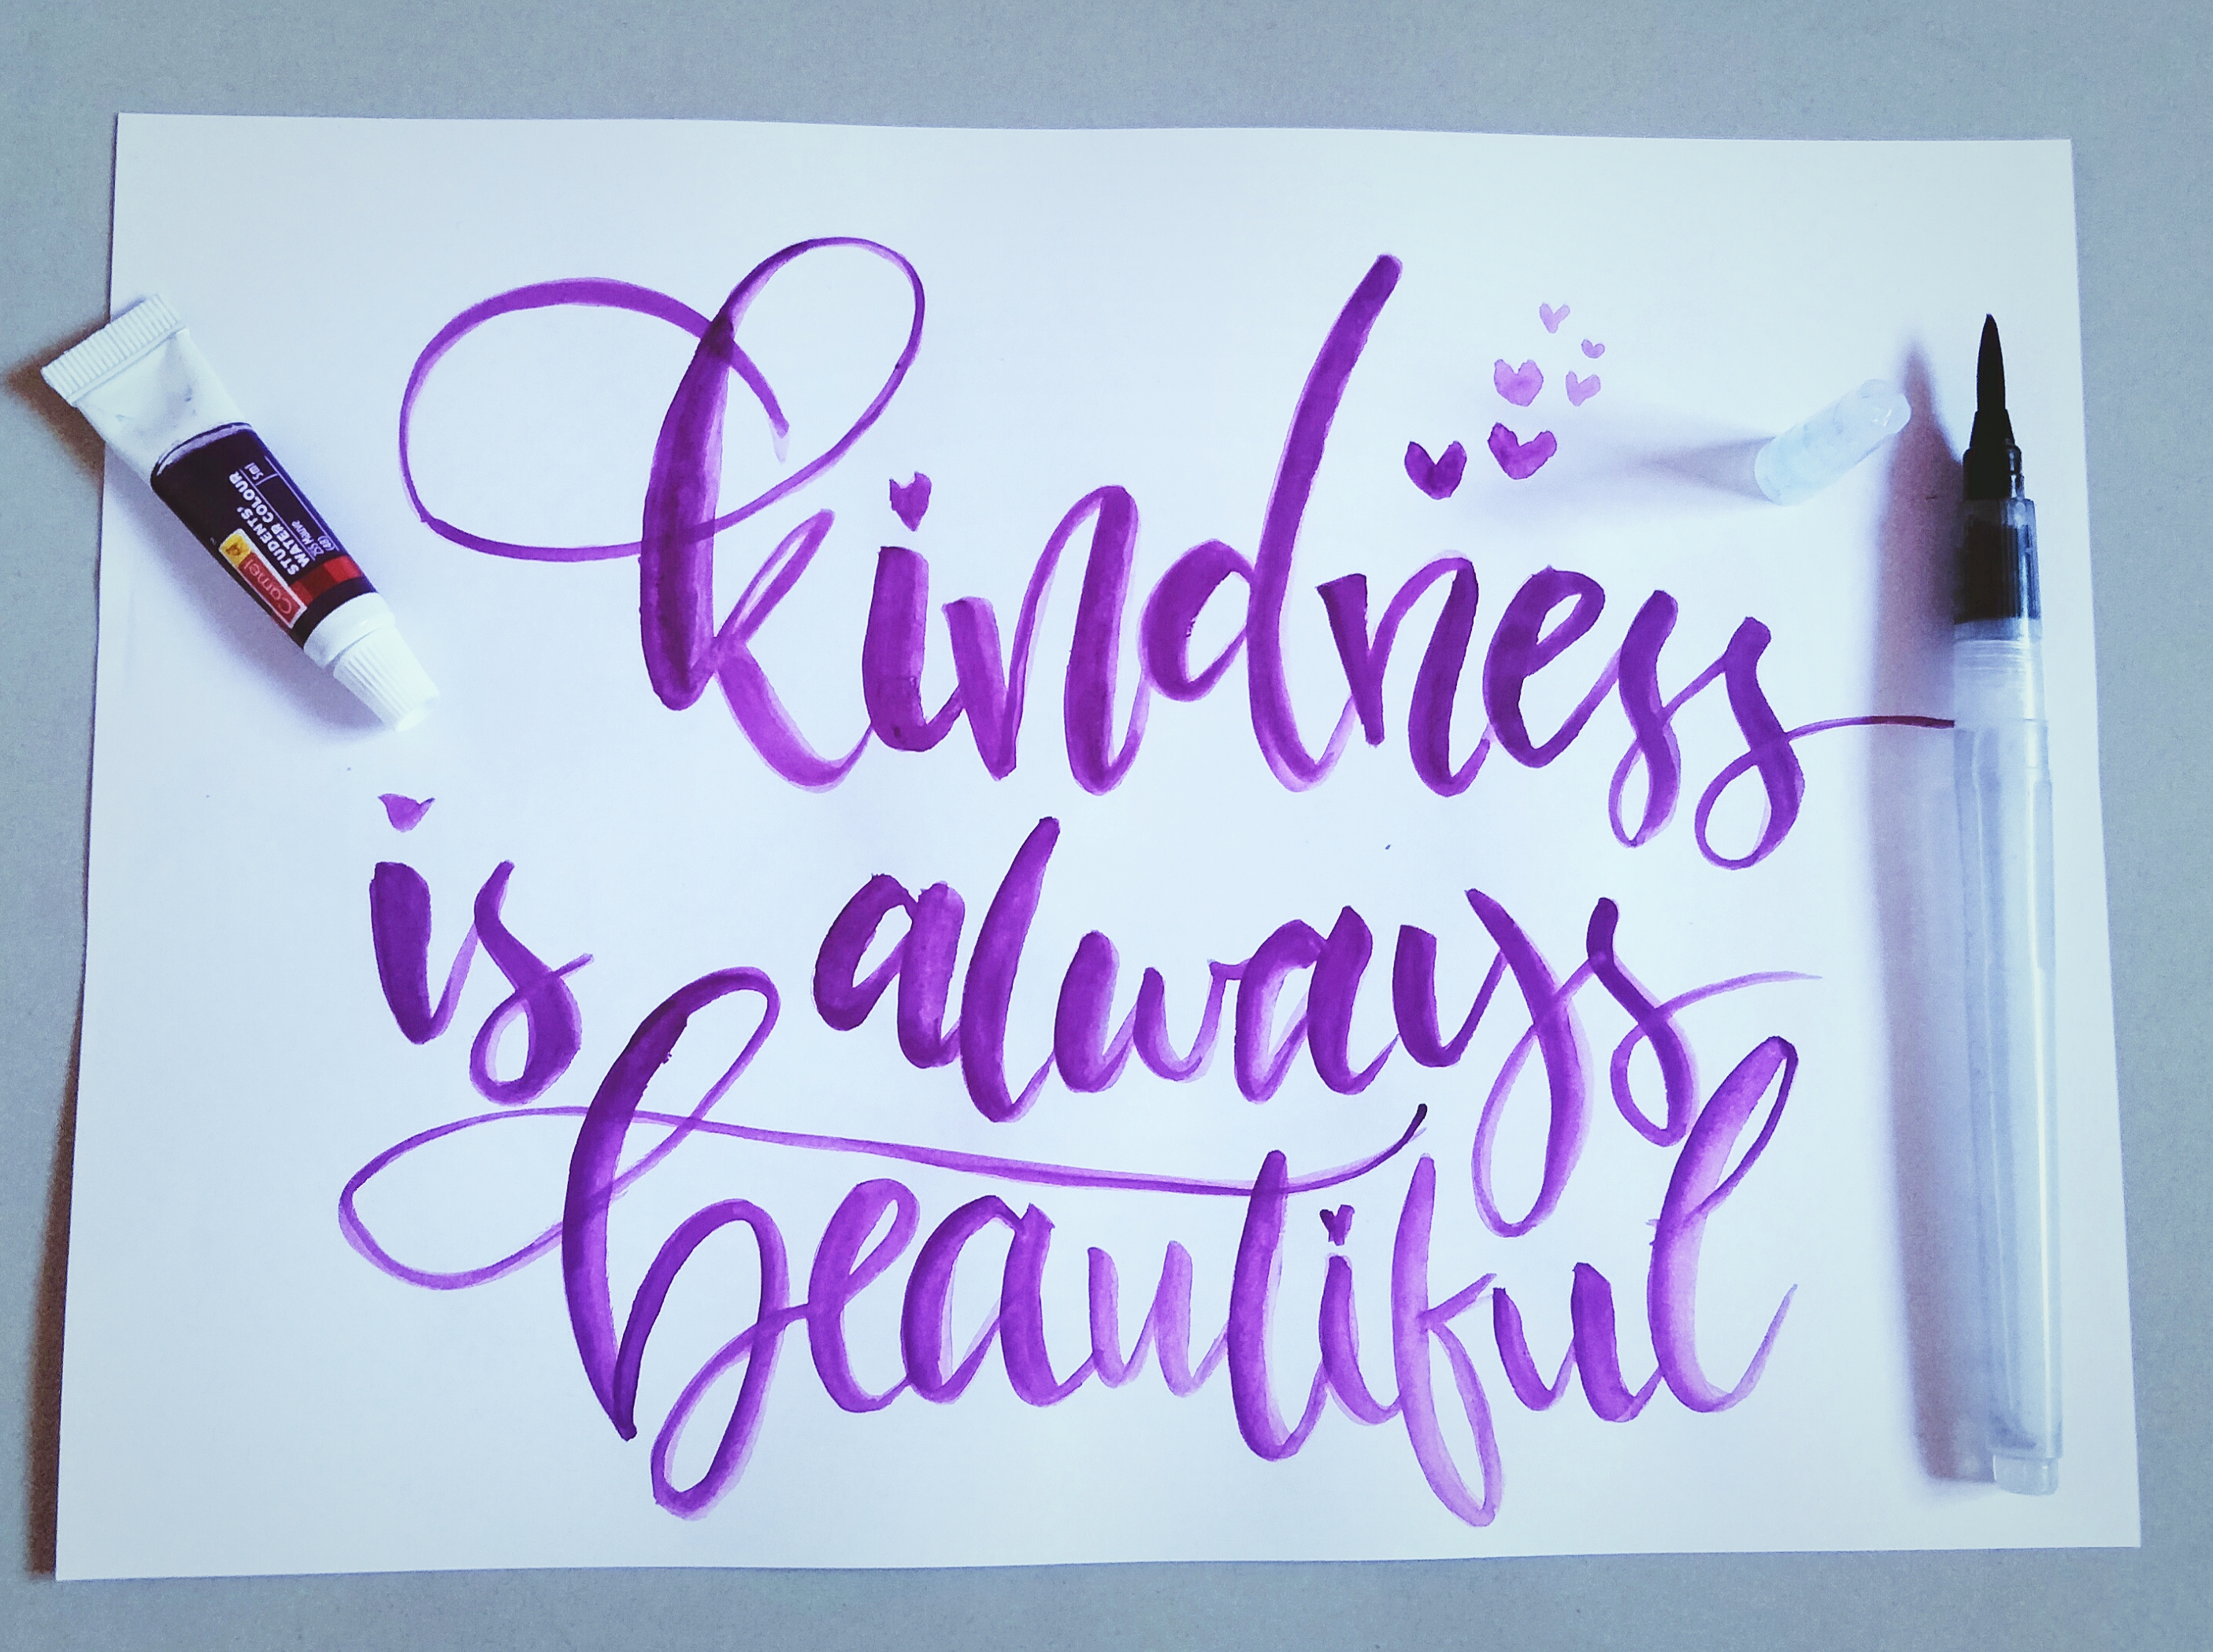 kindness
is always
beautiful
Camel
STUDENTS'
WATER COLOUR
255 Mauve
5ml